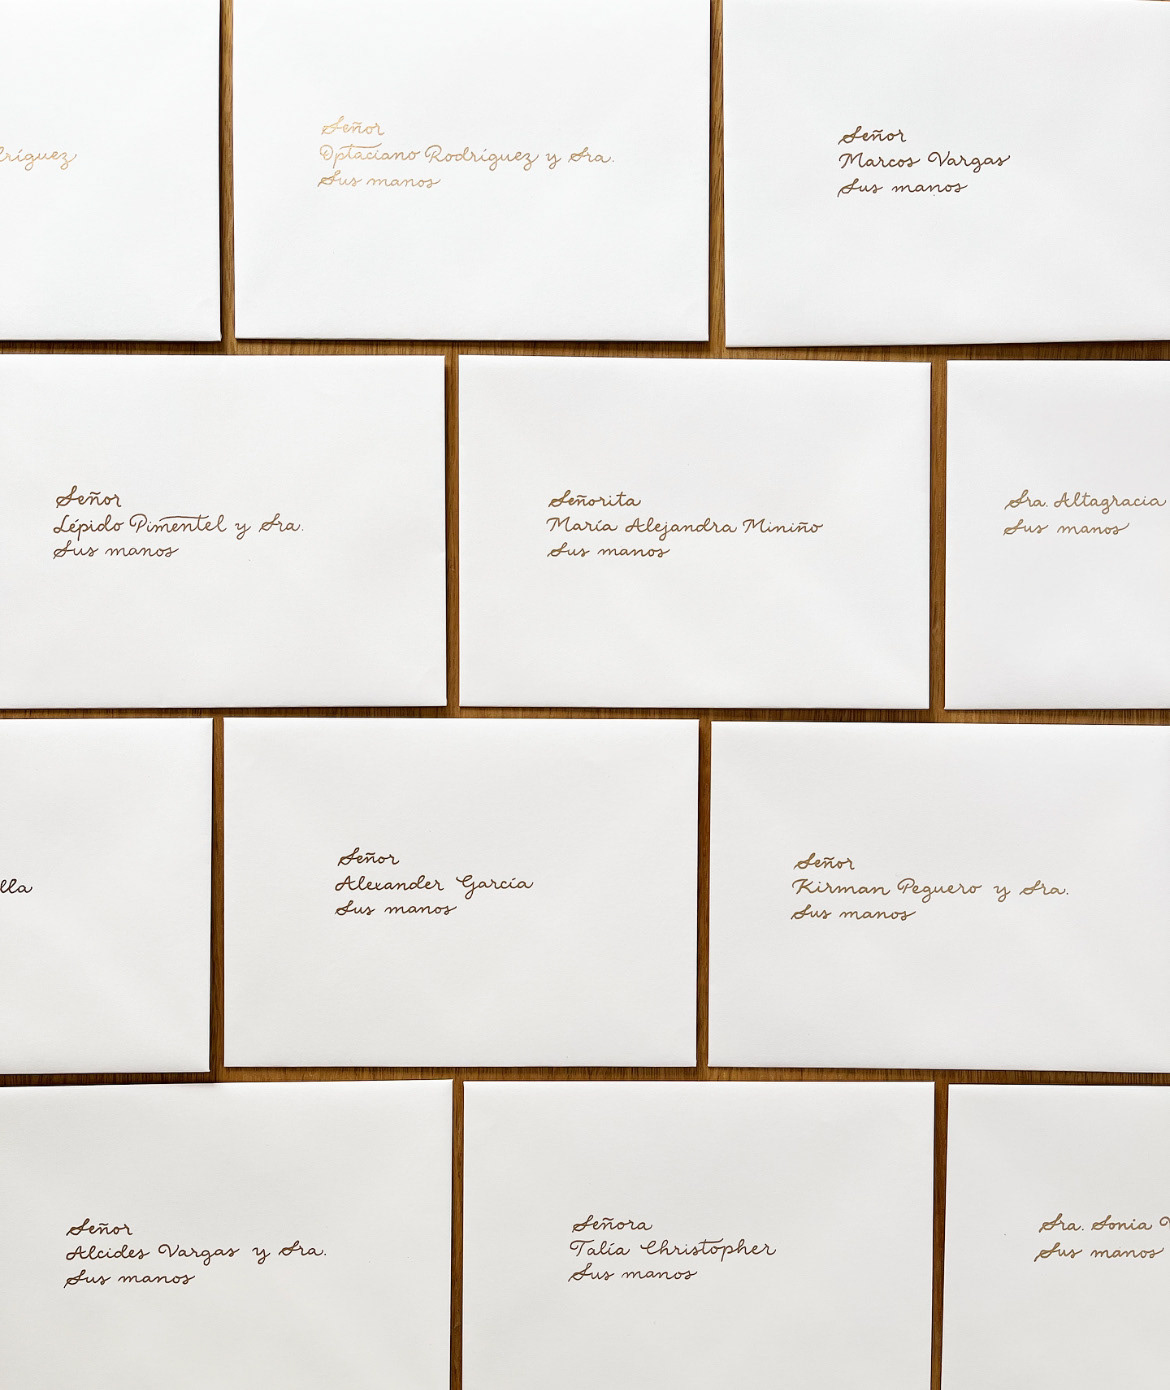 Señor
Optaciano Rodríguez y Sra.
Sus manos
Señor
Marcos Vargas
Sus manos
Señor
Lépido Pimentel y Sra.
Sus manos
Señorita
María Alejandra Miniño
Sus manos
Sra. Altagracia
Sus manos
Señor
Alexander García
Sus manos
Señor
Kirman Peguero y Sra.
Sus manos
Señor
Alcides Vargas y Sra.
Sus manos
Señora
Talía Christopher
Sus manos
Sra. Sonia
Sus manos